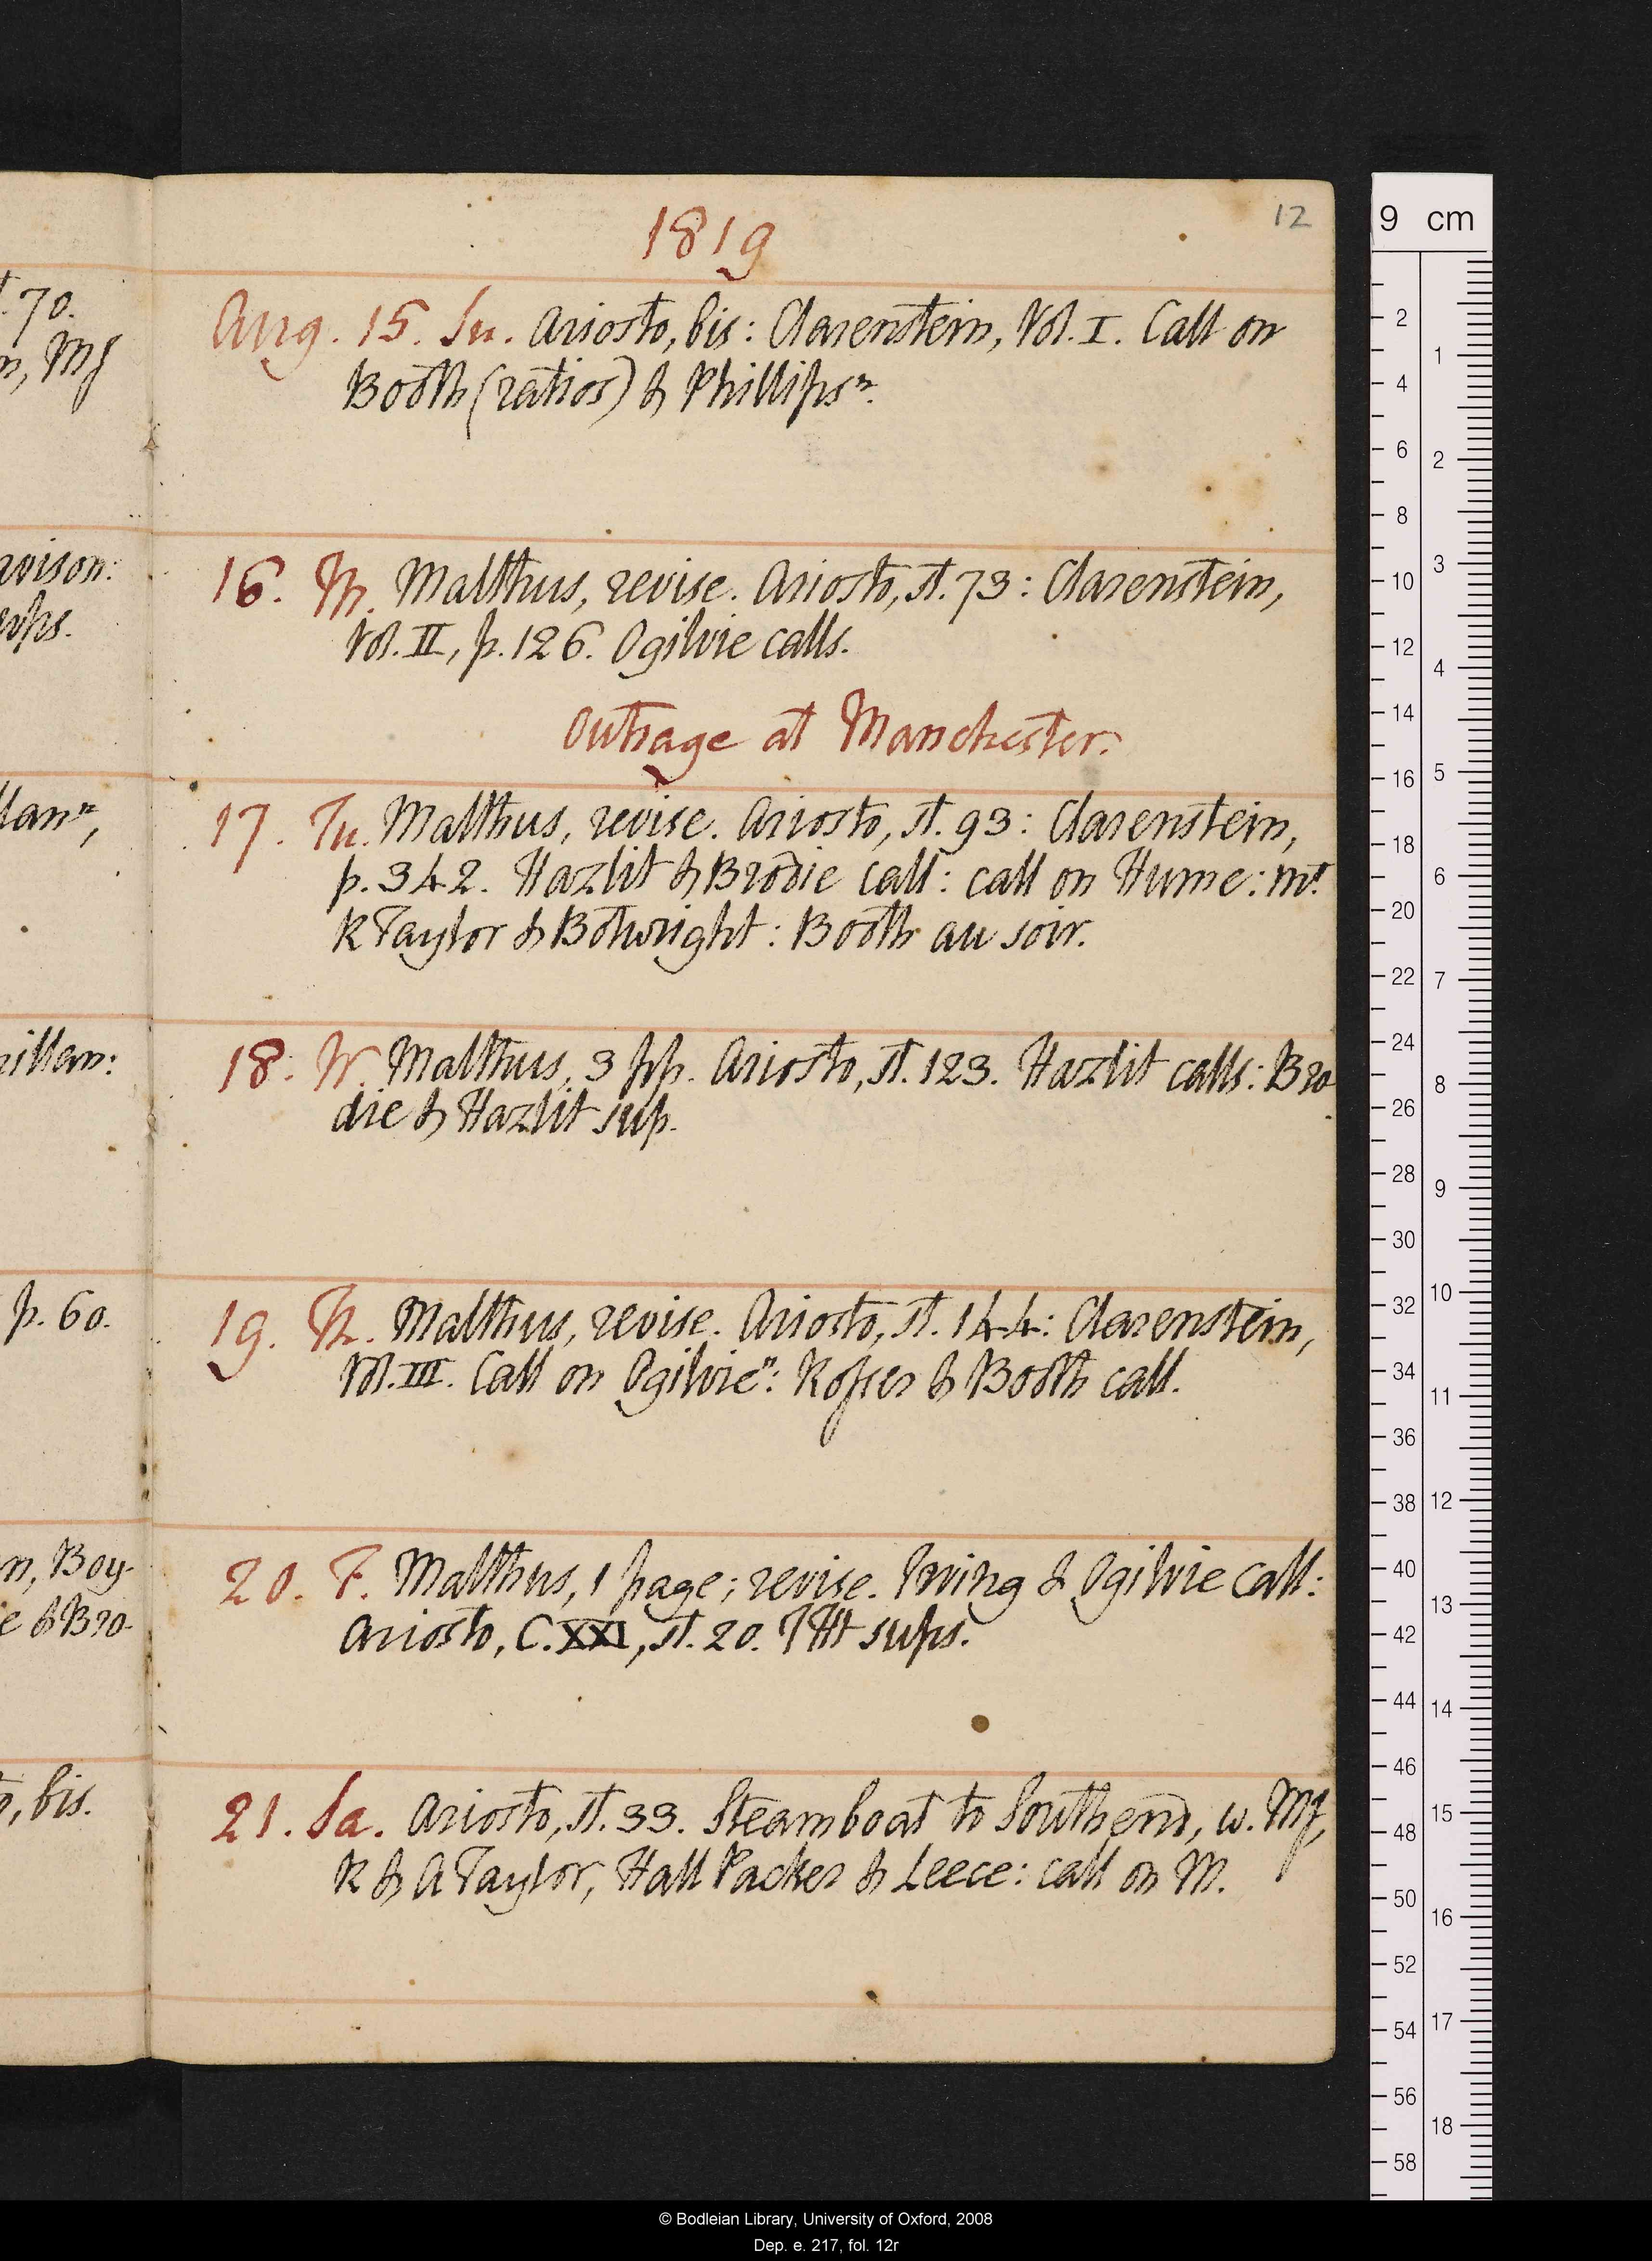 12
1819
t. 70.
n, MJ
Aug. 15. Su. Ariosto, bis: Clarenstein, Vol. I. Call on
Booth (ratios) & Phillips n.
avison:
sups.
16. M. Malthus, revise. Ariosto, st. 73: Clarenstein,
Vol. II, p. 126. Ogilvie calls.
Outrage at Manchester.
llan n,
17. Tu. Malthus, revise. Ariosto, st. 93: Clarenstein,
p. 342. Hazlit & Brodie call: call on Hume: mt
R Taylor & Botwright: Booth au soir.
millan:
18. W. Malthus, 3 pp. Ariosto, st. 123. Hazlit calls: Bro
die & Hazlit sup.
p. 60.
19. Th. Malthus, revise. Ariosto, st. 144: Clarenstein,
Vol. III. Call on Ogilvie n: Rosser & Booth call.
n, Boy-
e & Bro-
20. F. Malthus, 1 page; revise. Irving & Ogilvie call:
Ariosto, C. XXI, st. 20. THt sups.
o, bis.
21. Sa. Ariosto, st. 33. Steamboat to Southend, w. MJ,
R & A Taylor, Hall Packer & Leece: call on M.
9 cm
2
4
6
8
10
12
14
16
18
20
22
24
26
28
30
32
34
36
38
40
42
44
46
48
50
52
54
56
58
1
2
3
4
5
6
7
8
9
10
11
12
13
14
15
16
17
18
© Bodleian Library, University of Oxford, 2008
Dep. e. 217, fol. 12r